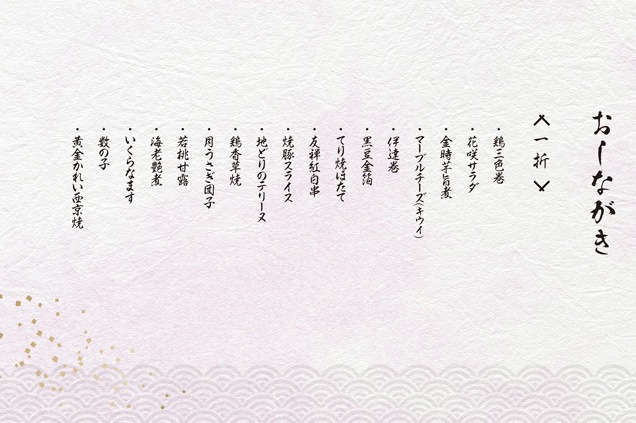 おしながき
＜一折＞
・鶏三色巻
・花咲サラダ
・金時芋旨煮
・マーブルチーズ(キウイ)
・伊達巻
・黒豆金箔
・てり焼ほたて
・友禅紅白串
・焼豚スライス
・地どりのテリーヌ
・鶏香草焼
・月うさぎ団子
・若桃甘露
・海老艶煮
・いくらなます
・数の子
・黄金かれい西京焼